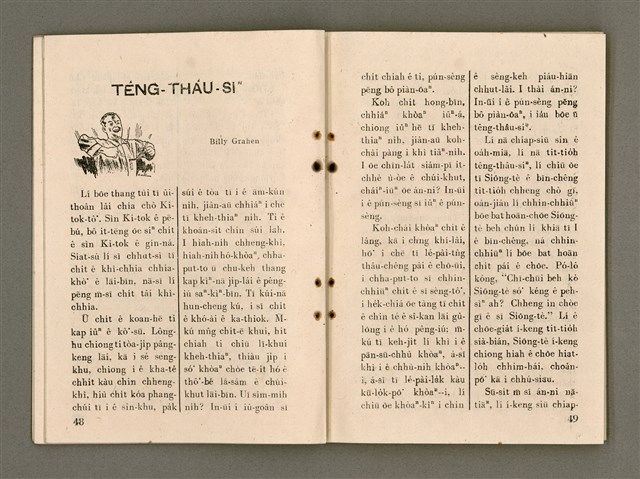 TÉNG-THÂU-SIⁿ
Billy Graben
Lí bōe thang tùi tī ùi-
thoân lâi chia chò Ki-
tok-tô͘. Sìn Ki-tok ê pē-
bú, bô it-tēng ōe siⁿ chi̍t
ê sìn Ki-tok ê gín-ná.
Siat-sú lí sī chhut-sì tī
chi̍t ê khì-chhia chhia-
khò͘ ê lāi-bīn, nā-sī lí
pēng m̄-sī chi̍t tâi khì-
chhia.
Ū chi̍t ê koan-hē ti
kap iûⁿ ê kò͘-sū. Lông-
hu chiong ti tòa-ji̍p pâng-
keng lāi, kā i sé seng-
khu, chiong i ê kha-tê
chhit kàu chin chheng-
khì, hiù chi̍t kóa phang-
chúi tī i ê sin-khu, pa̍k
súi ê tòa tī i ê ām-kún
nih, jiân-āu chhiáⁿ i chē
tī kheh-thiaⁿ nih. Ti ê
khoán-sit chin súi lah.
I hiah-nih chheng-khì,
hiah-nih hó-khòaⁿ, chha-
put-to ū chu-keh thang
kap kíⁿ-nā ji̍p-lâi ê pêng-
iú saⁿ-kìⁿ-bīn. Tī kúi-nā
hun-cheng kú, i sī chi̍t
ê khó-ài ê ka-thiok. M̄-
kú mn̂g chi̍t-ē khui, hit
chiah ti chiū lī-khui
kheh-thiaⁿ, thiàu ji̍p i
só͘ khòaⁿ chòe tē-it hó ê
thô͘-bê lâ-sâm ê chúi-
khut lāi-bīn. Uī sím-mih
nih? In-ūi i iû-goân sī
48
chi̍t chiah ê ti, pún-sèng
pēng bô piàn-ōaⁿ.
Koh chi̍t hong-bīn,
chhiáⁿ khòaⁿ iûⁿ-á,
chiong iûⁿ hē tī kheh-
thiaⁿ nih, jiân-āu koh-
chài pàng i khì tiâⁿ-nih.
I ōe chīn-la̍t siám-pī it-
chhè ù-òe ê chúi-khut,
cháiⁿ-iūⁿ ōe án-ni? In-ūi
i ê pún-sèng sī iûⁿ ê pún-
sèng.
Koh-chài khòaⁿ chi̍t ê
lâng, kā i chng khí-lâi,
hō͘ i chē tī lé-pài-tn̂g
thâu-chêng pâi ê chō-ūi,
i chha-put-to sī chhin-
chhiūⁿ chi̍t ê sī sèng-tô͘,
i he̍k-chiá ōe tàng tī chi̍t
ê chin té ê sî-kan lāi gû-
lōng i ê hó pêng-iú; m̄-
kú tī keh-ji̍t lí khì i ê
pān-sū-chhù khòaⁿ, á-sī
khì i ê chhù-nih khòaⁿ--
i, á-sī tī lé-pài-la̍k kàu
kū-lo̍k-pō͘ khòaⁿ--i, lí
chiū ōe khòaⁿ-kìⁿ i chin
ê sèng-keh piáu-hiān
chhut-lâi. I thài án-ni?
In-ūi i ê pún-sèng pēng
bô piàn-ōaⁿ, i iáu bōe ū
têng-thâu-siⁿ.
Lí nā chiap-siū sin ê
oa̍h-miā, lí nā tit-tio̍h
têng-thâu-siⁿ, lí chiū ōe
tī Siōng-tè ê bīn-chêng
tit-tio̍h chheng chò gī,
oân-jiân lí chhin-chhiūⁿ
bōe bat hoān-chōe Siōng-
tè beh chún lí khiā tī I
ê bīn-chêng, ná chhin-
chhiūⁿ lí bōe bat hoān
chi̍t pái ê chōe. Pó-lô
kóng, “Chi-chūi beh kò
Siōng-tè só͘ kéng ê peh-
sìⁿ ah? Chheng in chòe
gī ê sī Siōng-tè.” Lí ê
chōe-gia̍t í-keng tit-tio̍h
sià-biān, Siōng-tè í-keng
chiong hiah ê chōe hiat-
lo̍h chhim-hái, choân-
pō͘ kā i chhú-siau.
Sū-si̍t m̄ sī án-ni nā-
tiāⁿ, lí í-keng siū chiap-
49